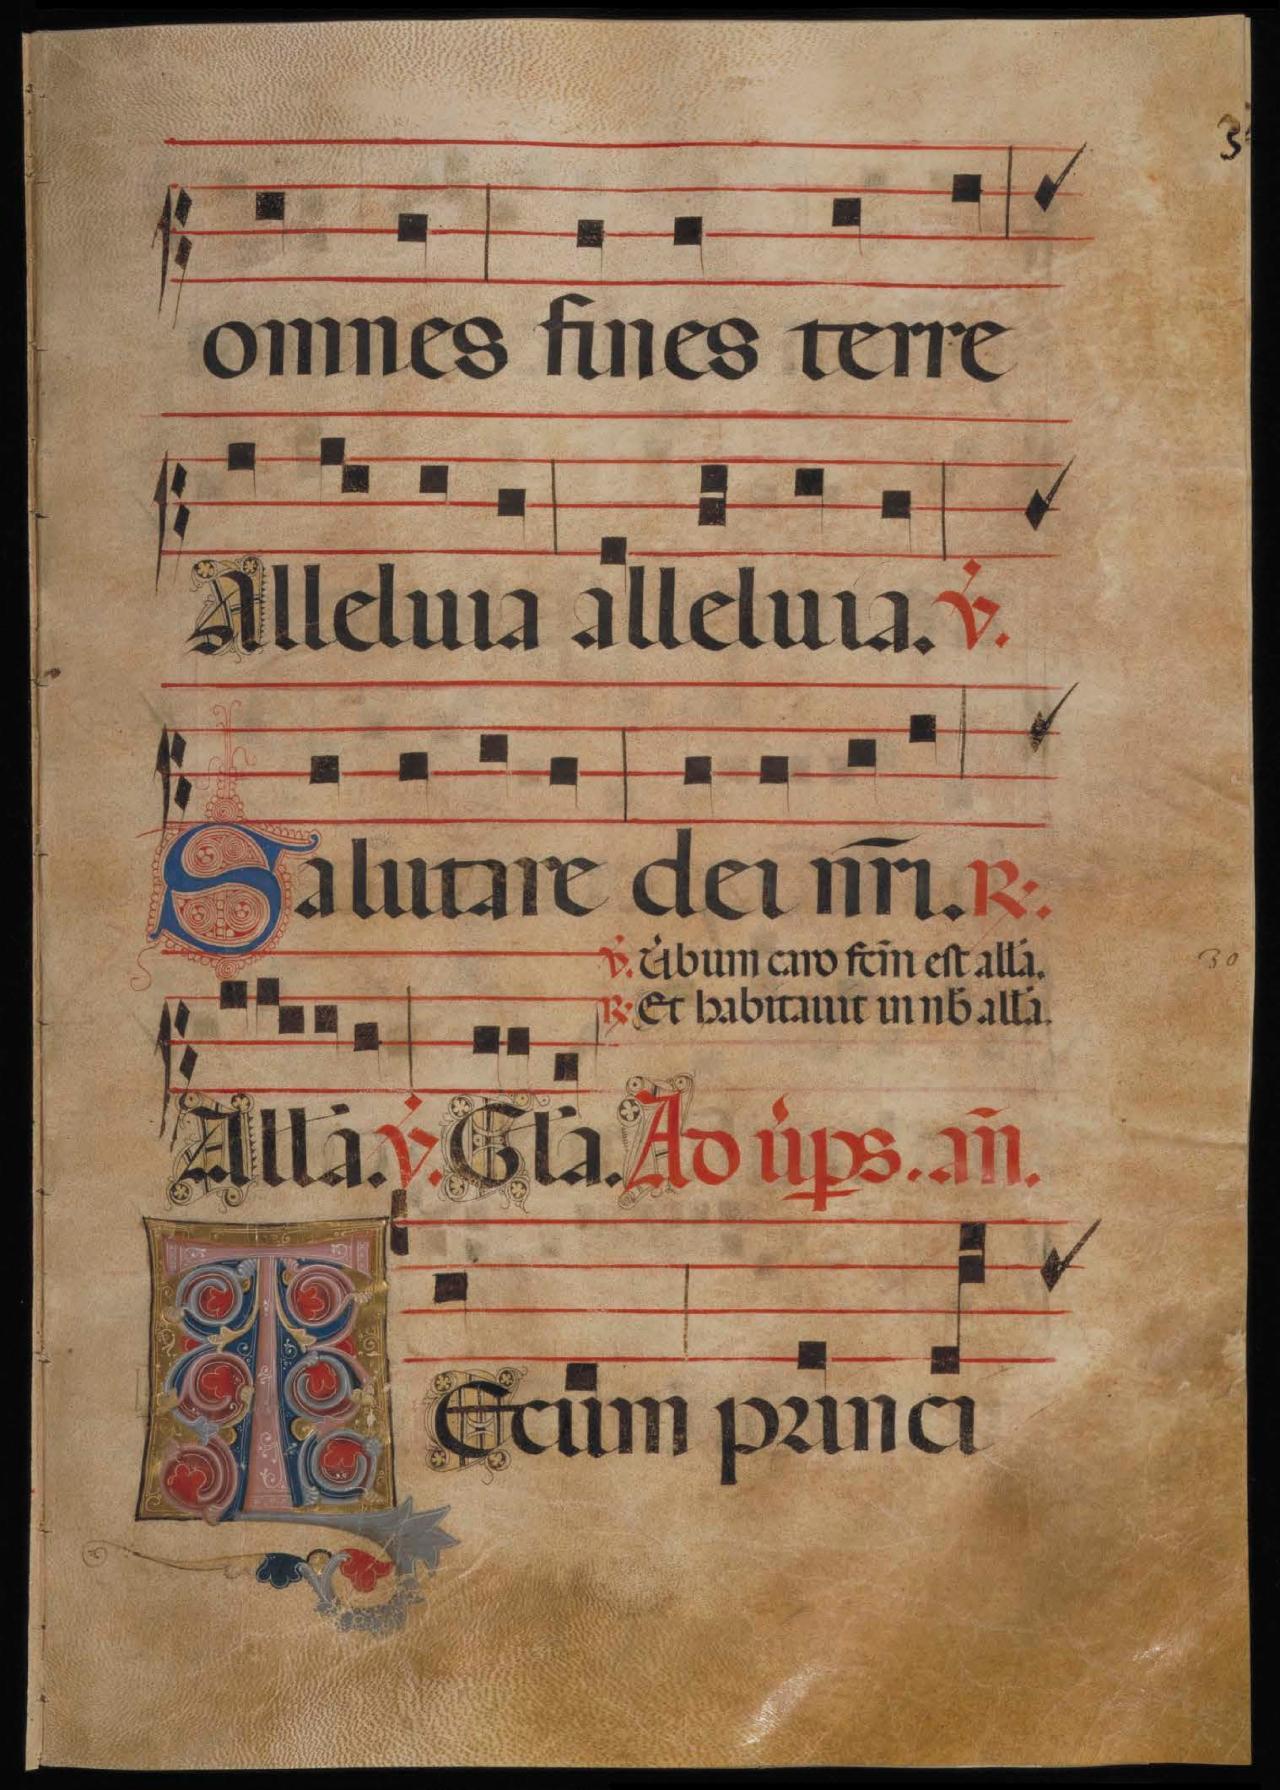 3
omnes fines terre
Alleluia alleluia. v̇.
Salutare dei nr̄i. R:.
v̇. U̇bum caro fcm̄ est all̄a.
30
R: Et habitauit in nob̄ all̄a.
All̄a. v̇. Gl̄a. Ad u̇ps. an̄.
TEcum princi